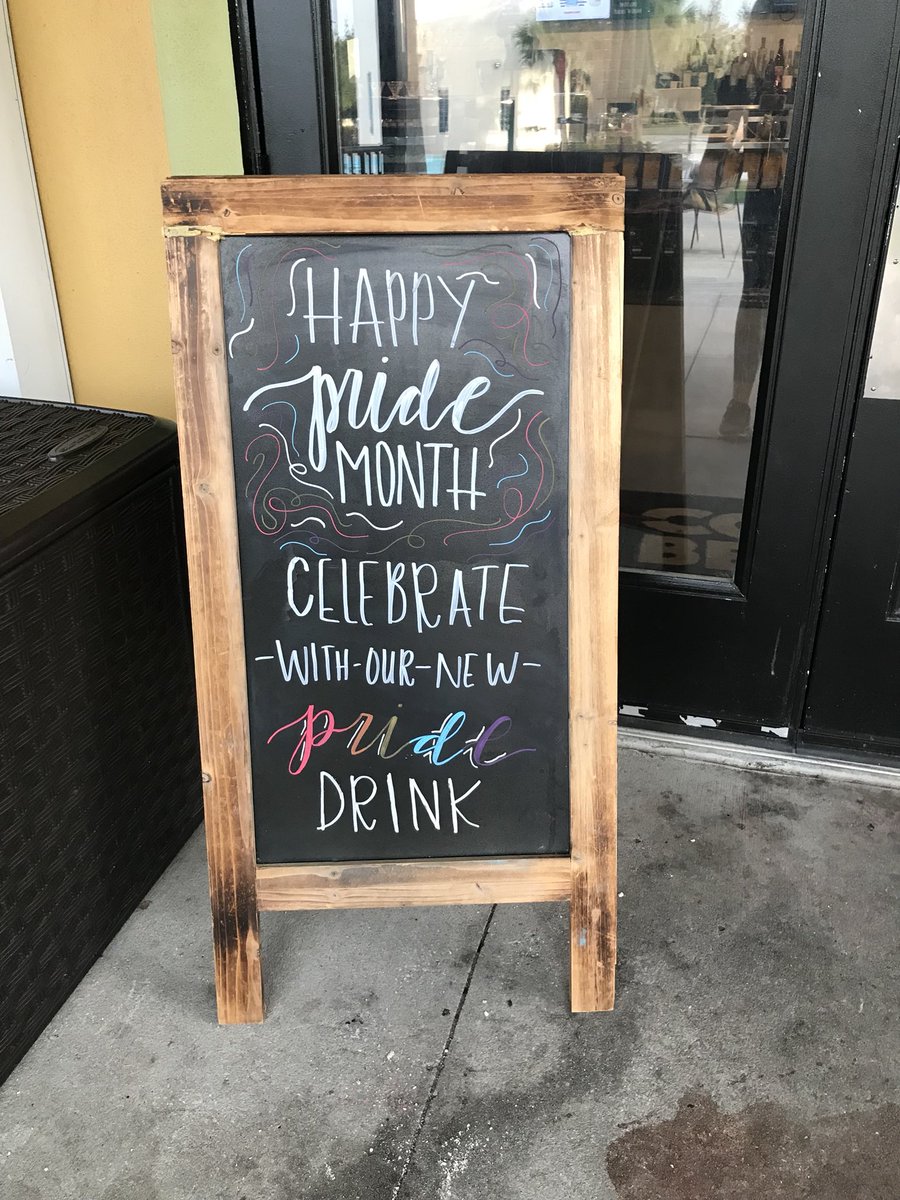 HAPPY
pride
MONTH
CELEBRATE
-WITH-OUR-NEW-
pride
DRINK